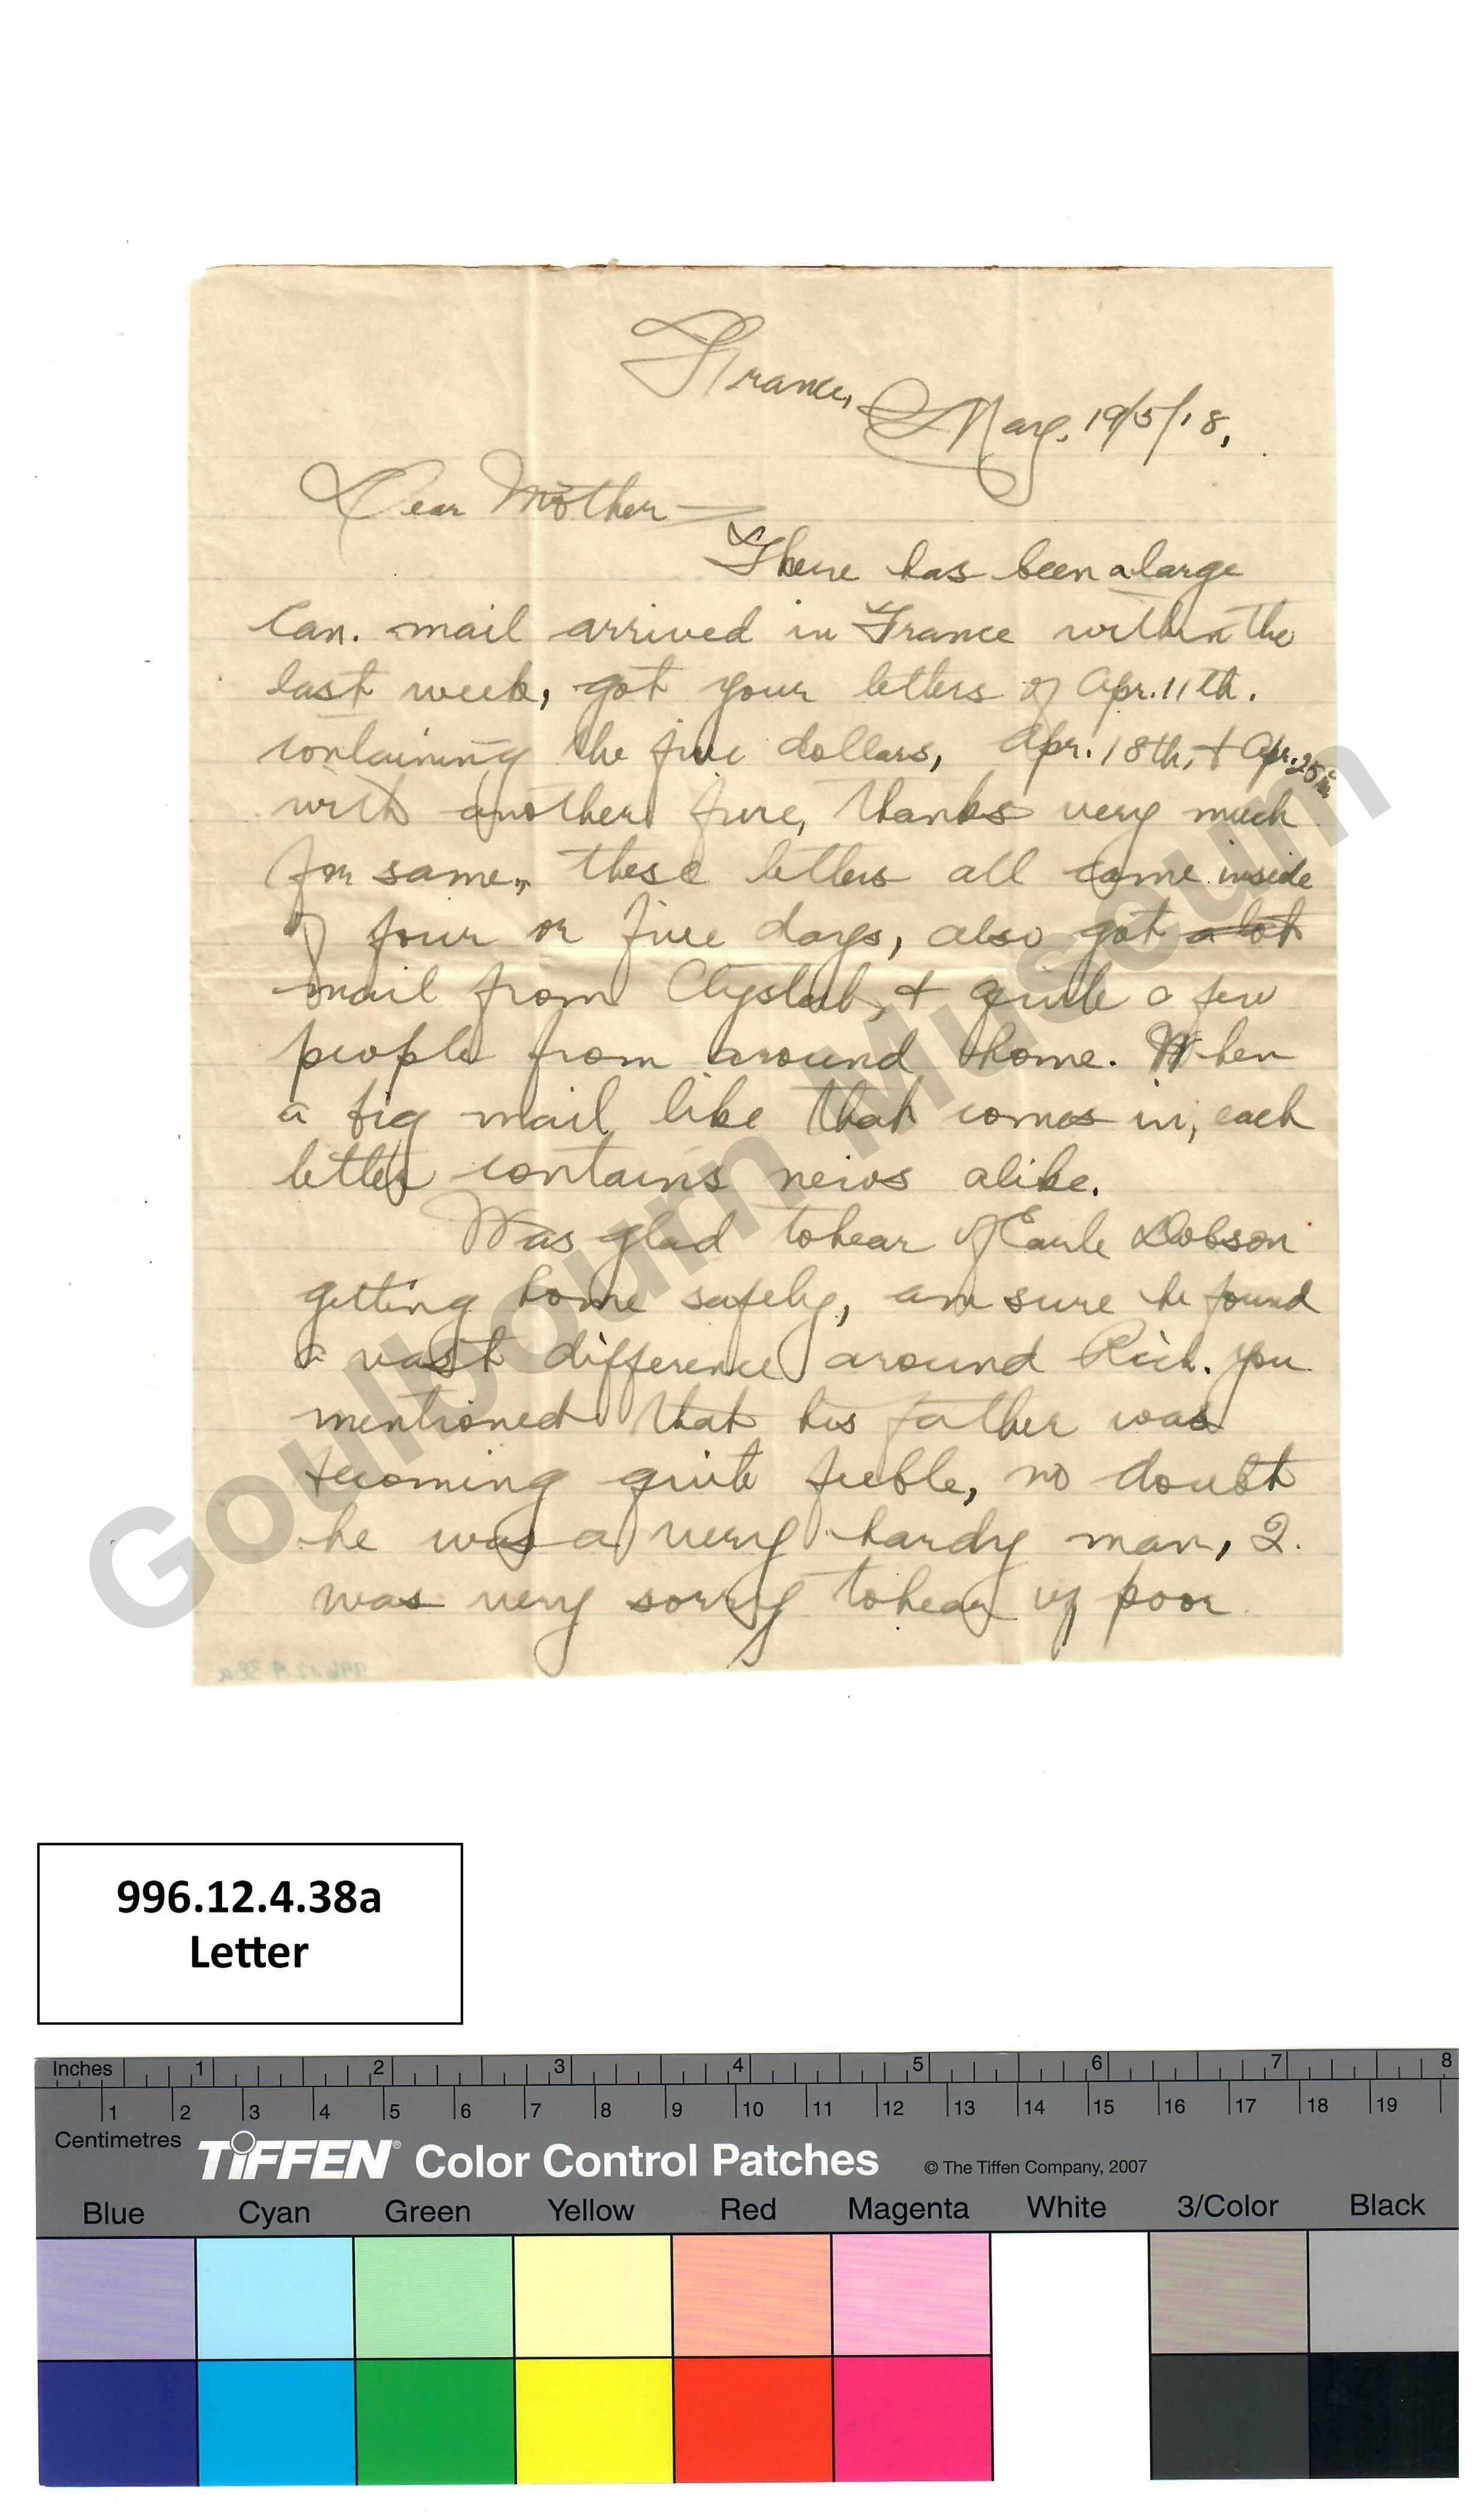 France,
May, 19/5/18,
Dear Mother —
There has been a large
Can. mail arrived in France within the
last week, got your letters of Apr. 11th.
containing the five dollars, Apr. 18th, & Apr. 25th
with another five, thanks very much
for same, these letters all came inside
of four or five days, also got a lot
mail from & quite a few
people from around home. When
a big mail like that comes in, each
letter contains news alike.
Was glad to hear of Earle Dobson
getting home safely, am sure he found
a vast difference around Rich. you
mentioned that his father was
becoming quite feeble, no doubt
he was a very hardy man, I.
was very sorry to hear of poor
996.12.4.38a
Goulbourn Museum
996.12.4.38a
Letter
Inches 1 2 3 4 5 6 7 8
1 2 3 4 5 6 7 8 9 10 11 12 13 14 15 16 17 18 19
Centimetres
TIFFEN® Color Control Patches © The Tiffen Company, 2007
Blue Cyan Green Yellow Red Magenta White 3/Color Black